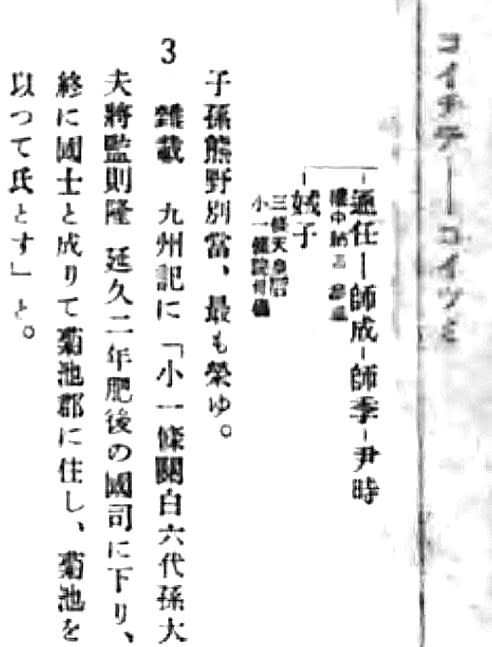 コイチデ―コイツミ
通任―師成―師季―尹時
權中納言
娍子
三條天皇后
小一條院母儀
子孫熊野別當、最も榮ゆ。
3 雜載 九州記に「小一條關白六代孫大
夫將監則隆 延久二年肥後の國司に下り、
終に國士と成りて菊池郡に住し、菊池を
以つて氏とす」と。